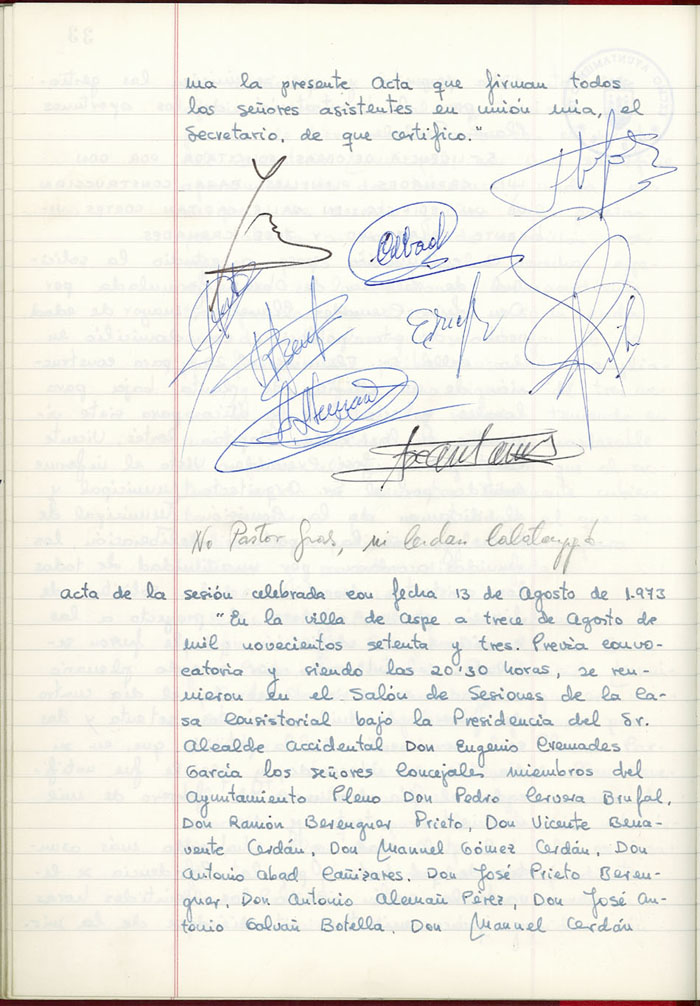 ma la presente Acta que firman todos
los señores asistentes en unión mia, el
Secretario, de que certifico."
Abad
No Pastor Gras, ni Cerdan Calatayud
acta de la sesión celebrada con fecha 13 de Agosto de 1.973
"En la villa de Aspe a trece de Agosto de
mil novecientos setenta y tres. Previa convo-
catoria y siendo las 20'30 horas, se reu-
nieron en el Salón de Sesiones de la Ca-
sa Consistorial bajo la Presidencia del Sr.
Alcalde Accidental Don Eugenio Cremades
García los señores Concejales miembros del
Ayuntamiento Pleno Don Pedro Cervera Brufal,
Don Ramón Berenguer Prieto, Don Vicente Bena-
vente Cerdán, Don Manuel Gómez Cerdán, Don
Antonio Abad Cañizares, Don José Prieto Beren-
guer, Don Antonio Alemañ Pérez, Don José An-
tonio Galvañ Botella, Don Manuel Cerdán